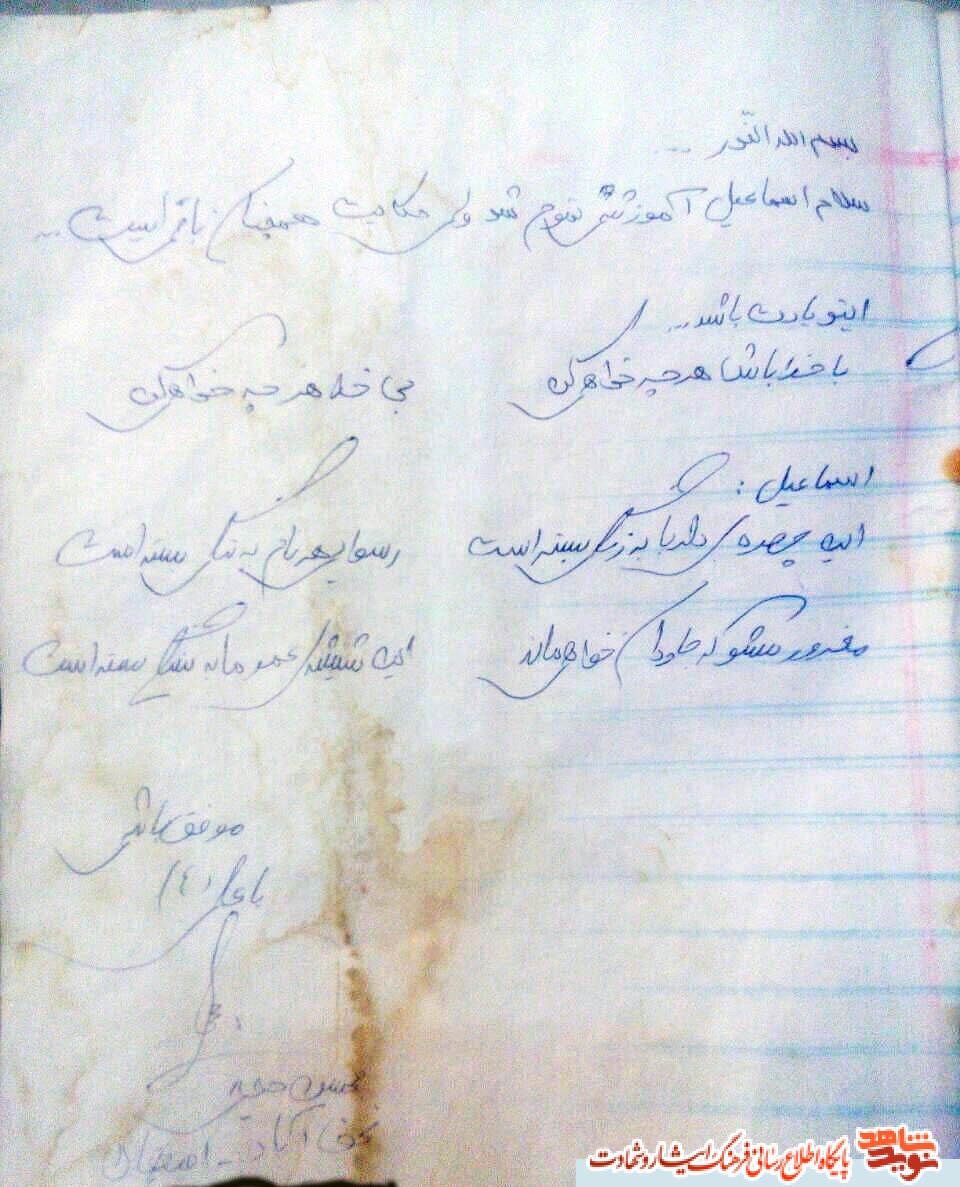 بسم الله النّور ...
سلام اسماعیل آموزشی تموم شد ولی حکایت همچنان باقیست ...
اینو یادت باشد ...
با خدا باش هر چه خواهی کن بی خدا هر چه خواهی کن
اسماعیل :
این چهره‌ی دلربا به رنگی بسته است رسوایی هر نام به ننگی بسته است
مغرور مشو که جاودان خواهی ماند این شیشه‌ی عمر ما به سنگی بسته است
موفق باشی
یا علی (ع)
محسن حججی
نجف آباد - اصفهان
نوید شاهد پایگاه اطلاع رسانی فرهنگ ایثار و شهادت